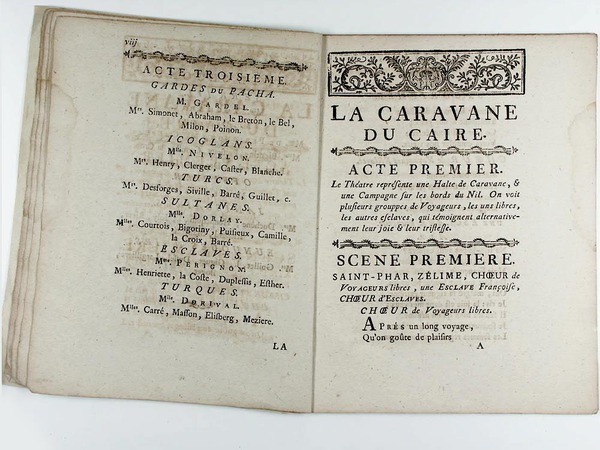 viij
ACTE TROISIEME.
GARDES DU PACHA.
M. GARDEL.
Mrs. Simonet, Abraham, le Breton, le Bel,
Milon, Poinon.
ICOGLANS.
Mlle. NIVELON.
Mrs. Henry, Clerger, Caster, Blanche.
TURCS.
Mrs. Desforges, Siville, Barré, Guillet, c.
SULTANES.
Mlle. DORLAY.
Mlles. Courtois, Bigotiny, Puisieux, Camille,
la Croix, Barré.
ESCLAVES.
Mme. PÉRIGNON.
Mlles. Henriette, la Coste, Duplessis, Esther.
TURQUES.
Mlle. DORIVAL.
Mlles. Carré, Masson, Elisberg, Meziere.
LA
LA CARAVANE
DU CAIRE.
ACTE PREMIER.
Le Théatre représente une Halte de Caravane, &
une Campagne sur les bords du Nil. On voit
plusieurs grouppes de Voyageurs, les uns libres,
les autres esclaves, qui témoignent alternative-
ment leur joie & leur tristesse.
SCENE PREMIERE.
SAINT-PHAR, ZÉLIME, CHŒUR de
VOYAGEURS libres, une ESCLAVE Françoise,
CHŒUR d'ESCLAVES.
CHŒUR de Voyageurs libres.
APRÉS un long voyage,
Qu'on goûte de plaisirs
A